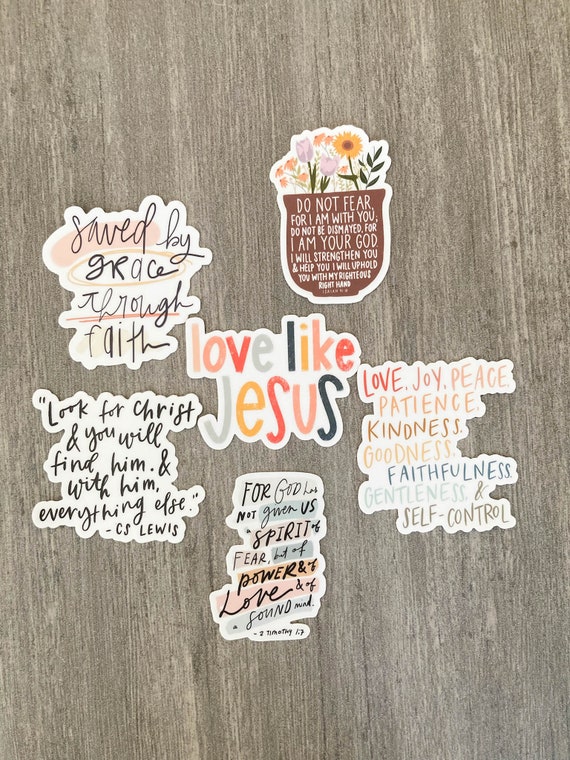 DO NOT FEAR,
FOR I AM WITH YOU;
DO NOT BE DISMAYED, FOR
I AM YOUR GOD
I WILL STRENGTHEN YOU
& HELP YOU I WILL UPHOLD
YOU WITH MY RIGHTEOUS
RIGHT HAND
ISAIAH 41:10
saved by
grace
through
faith
love like
Jesus
"Look for Christ
& you will
find him. &
with him,
everything else."
- CS LEWIS
LOVE, JOY, PEACE,
PATIENCE,
KINDNESS,
GOODNESS,
FAITHFULNESS,
GENTLENESS, &
SELF-CONTROL
FOR GOD has
NOT given US
a SPIRIT of
FEAR, but of
POWER & of
Love & of
a SOUND mind.
- 2 TIMOTHY 1:7